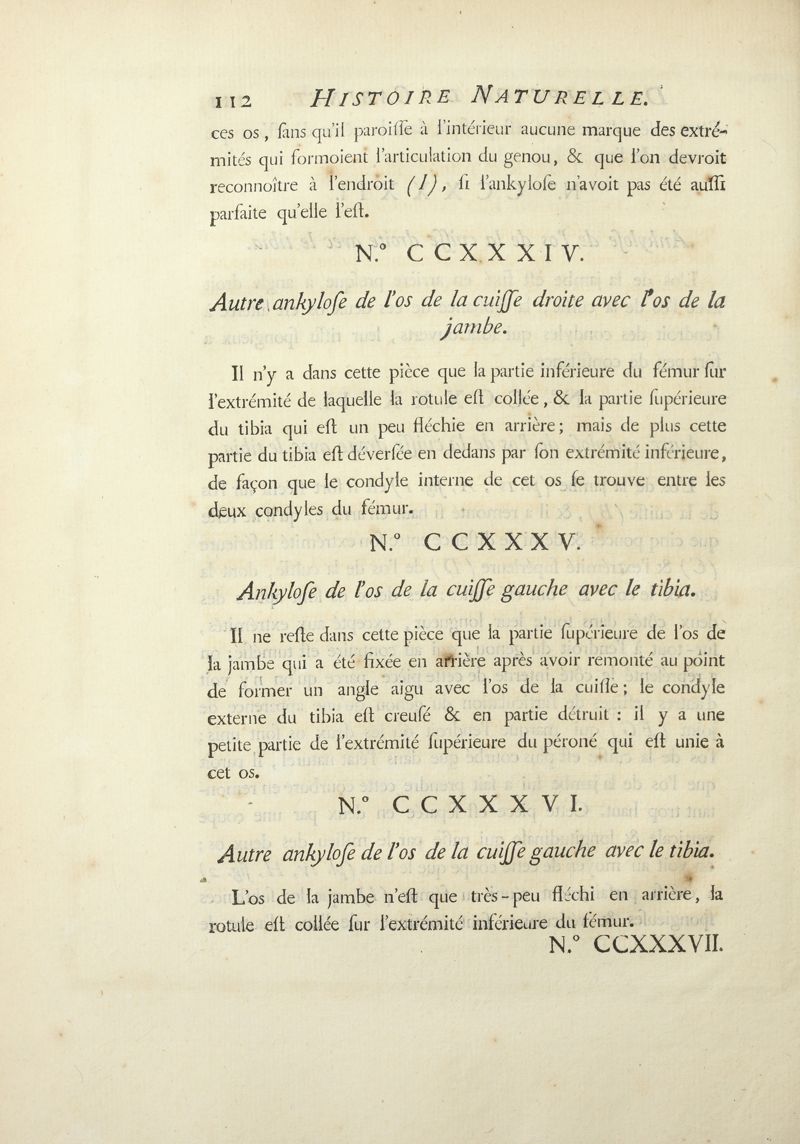 112 HISTOIRE NATURELLE.
ces os, ſans qu'il paroiſſe à l'intérieur aucune marque des extré-
mités qui formoient l'articulation du genou, & que l'on devroit
reconnoître à l'endroit (l), ſi l'ankyloſe n'avoit pas été auſſi
parfaite qu'elle l'eſt.
N.º CCXXXIV.
Autre ankyloſe de l'os de la cuiſſe droite avec l'os de la
jambe.
Il n'y a dans cette pièce que la partie inférieure du fémur ſur
l'extrémité de laquelle la rotule eſt collée, & la partie ſupérieure
du tibia qui eſt un peu fléchie en arrière; mais de plus cette
partie du tibia eſt déverſée en dedans par ſon extrémité inférieure,
de façon que le condyle interne de cet os ſe trouve entre les
deux condyles du fémur.
N.º CCXXXV.
Ankyloſe de l'os de la cuiſſe gauche avec le tibia.
Il ne reſte dans cette pièce que la partie ſupérieure de l'os de
la jambe qui a été fixée en arrière après avoir remonté au point
de former un angle aigu avec l'os de la cuiſſe; le condyle
externe du tibia eſt creuſé & en partie détruit : il y a une
petite partie de l'extrémité ſupérieure du péroné qui eſt unie à
cet os.
N.º CCXXXVI.
Autre ankyloſe de l'os de la cuiſſe gauche avec le tibia.
L'os de la jambe n'eſt que très-peu fléchi en arrière, la
rotule eſt collée ſur l'extrémité inférieure du fémur.
N.º CCXXXVII.